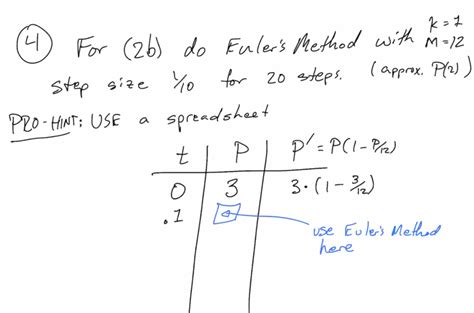 ④ For (2b) do Euler's Method with k=1 M=12
step size 1/10 for 20 steps. (approx. P(2))
PRO-HINT: USE a spreadsheet
t | P | P' = P(1 - P/12)
0 | 3 | 3·(1 - 3/12)
.1
use Euler's Method
here